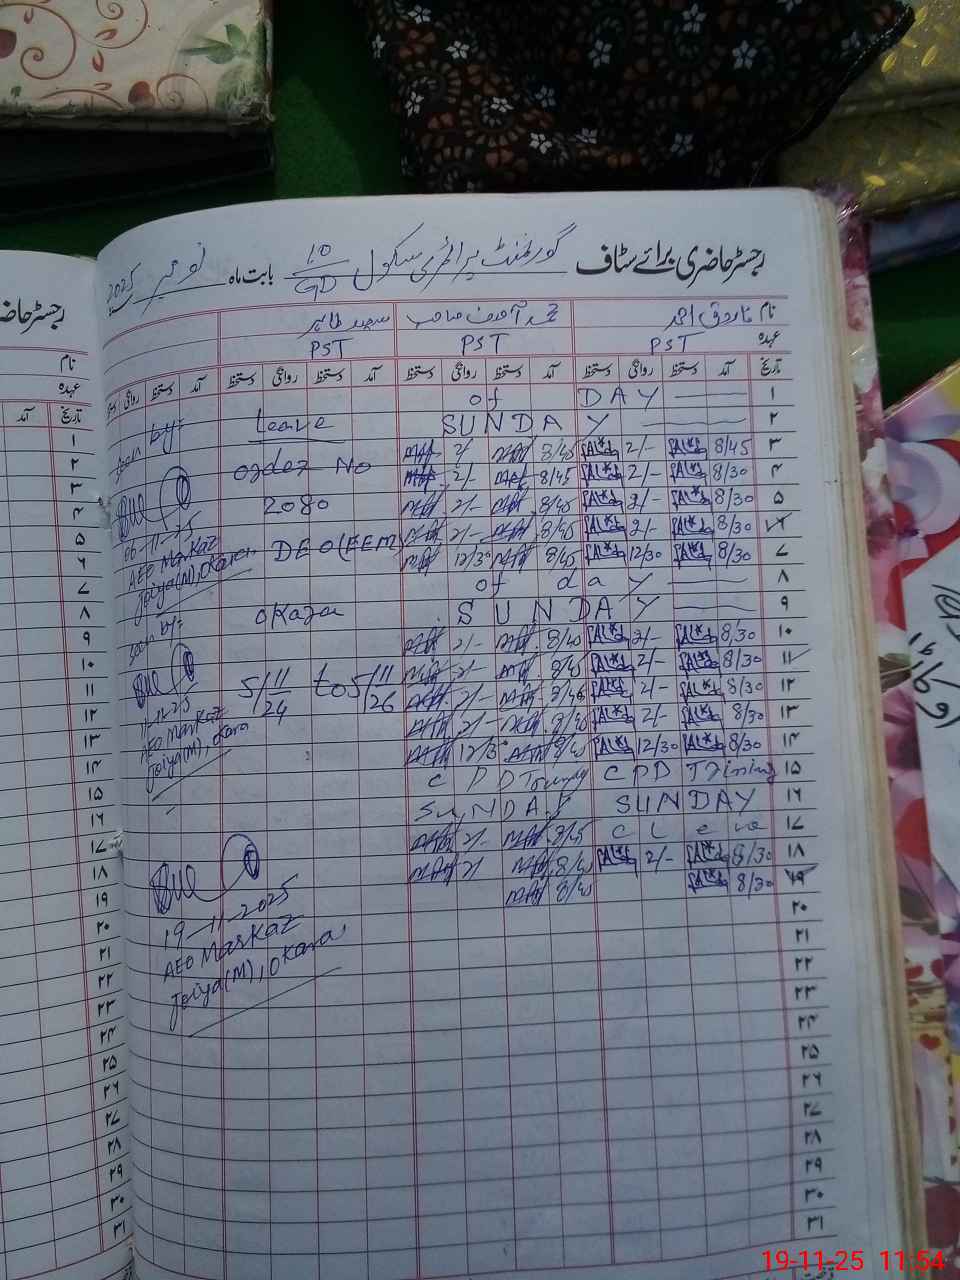 رجسٹر حاضری برائے سٹاف گورنمنٹ پرائمری سکول 10/GD بابت ماہ نومبر 2025
نام فاروق احمد محمد آصف صاحب سعید طاہر
عہدہ PST PST PST
تاریخ آمد دستخط روانگی دستخط آمد دستخط روانگی دستخط آمد دستخط روانگی دستخط آمد دستخط روانگی
۱ of DAY
۲ SUNDAY Leave
۳ 8/45 2/- 8/45 2/- order No
۴ 8/30 2/- 8/45 2/-
۵ 8/30 2/- 8/40 2/- 2080
۶ 8/30 2/- 8/40 2/-
۷ 8/30 12/30 8/45 12/30 DEO(EEM)
۸ of day
۹ SUNDAY okara
۱۰ 8/30 2/- 8/40 2/-
۱۱ 8/30 2/- 8/45 2/-
۱۲ 8/30 2/- 8/40 2/- 5/11/24 to 5/11/26
۱۳ 8/30 2/- 8/40 2/-
۱۴ 8/30 12/30 8/40 12/30
۱۵ CPD Trining CPD
۱۶ SUNDAY SUNDAY
۱۷ C Leve 8/45 2/-
۱۸ 8/30 2/- 8/40 2/-
۱۹ 8/30 8/40
۲۰
۲۱
۲۲
۲۳
۲۴
۲۵
۲۶
۲۷
۲۸
۲۹
۳۰
۳۱
Seen by:
06-11-25
AEO Markaz
Joiya(M), Okara
Seen by:
11-11-25
AEO Markaz
Joiya(M), Okara
19-11-2025
AEO Markaz
Joiya(M), Okara
رجسٹر حاضری
نام
عہدہ
تاریخ آمد
۱
۲
۳
۴
۵
۶
۷
۸
۹
۱۰
۱۱
۱۲
۱۳
۱۴
۱۵
۱۶
۱۷
۱۸
۱۹
۲۰
۲۱
۲۲
۲۳
۲۴
۲۵
۲۶
۲۷
۲۸
۲۹
۳۰
۳۱
19-11-25 11:54